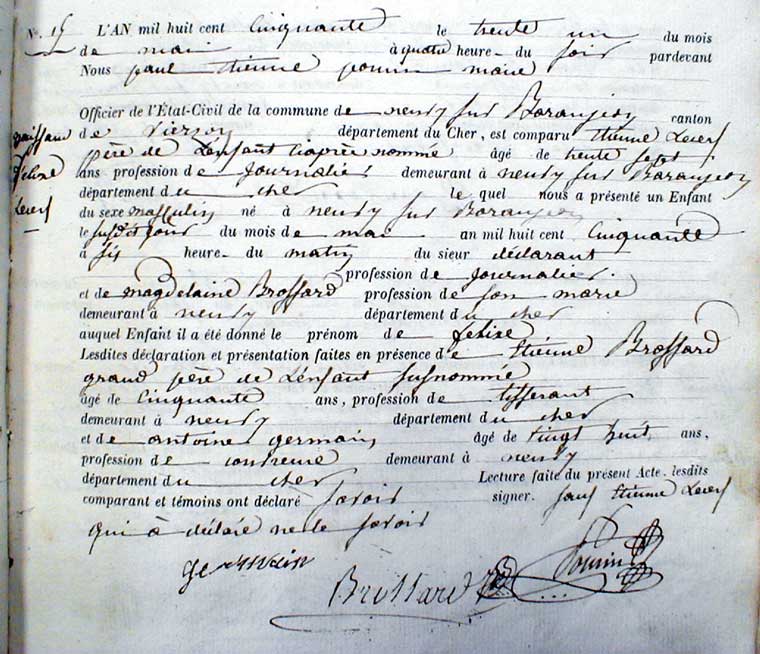 N.º 15 L'AN mil huit cent Cinquante le trente un du mois
de mai à quatre heure du soir pardevant
Nous paul Etienne poumin maire
Officier de l'État-Civil de la commune de neuvy sur Baranjon canton
de Vierson département du Cher, est comparu Etienne
père de L'enfant ciaprès nommé âgé de trente sept
ans profession de Journalier demeurant à neuvy sur Baranjon
département du cher le quel nous a présenté un Enfant
du sexe masculin né à neuvy sur Baranjon
le susdit jour du mois de mai an mil huit cent Cinquante
à six heure du matin du sieur déclarant
profession de Journalier
et de magdelaine Brossard profession de son marie
demeurant à neuvy département du cher
auquel Enfant il a été donné le prénom de felixe
Lesdites déclaration et présentation faites en présence de Etienne Brossard
grand père de L'enfant susnommé
âgé de Cinquante ans, profession de tisserant
demeurant à neuvy département du cher
et de antoine germain âgé de vingt huit ans,
profession de demeurant à neuvy
département du cher Lecture faite du présent Acte. lesdits
comparant et témoins ont déclaré savoir signer. sauf Etienne
qui à déclaré ne le savoir
naissance
felixe
Germain
Brossard
Poumin